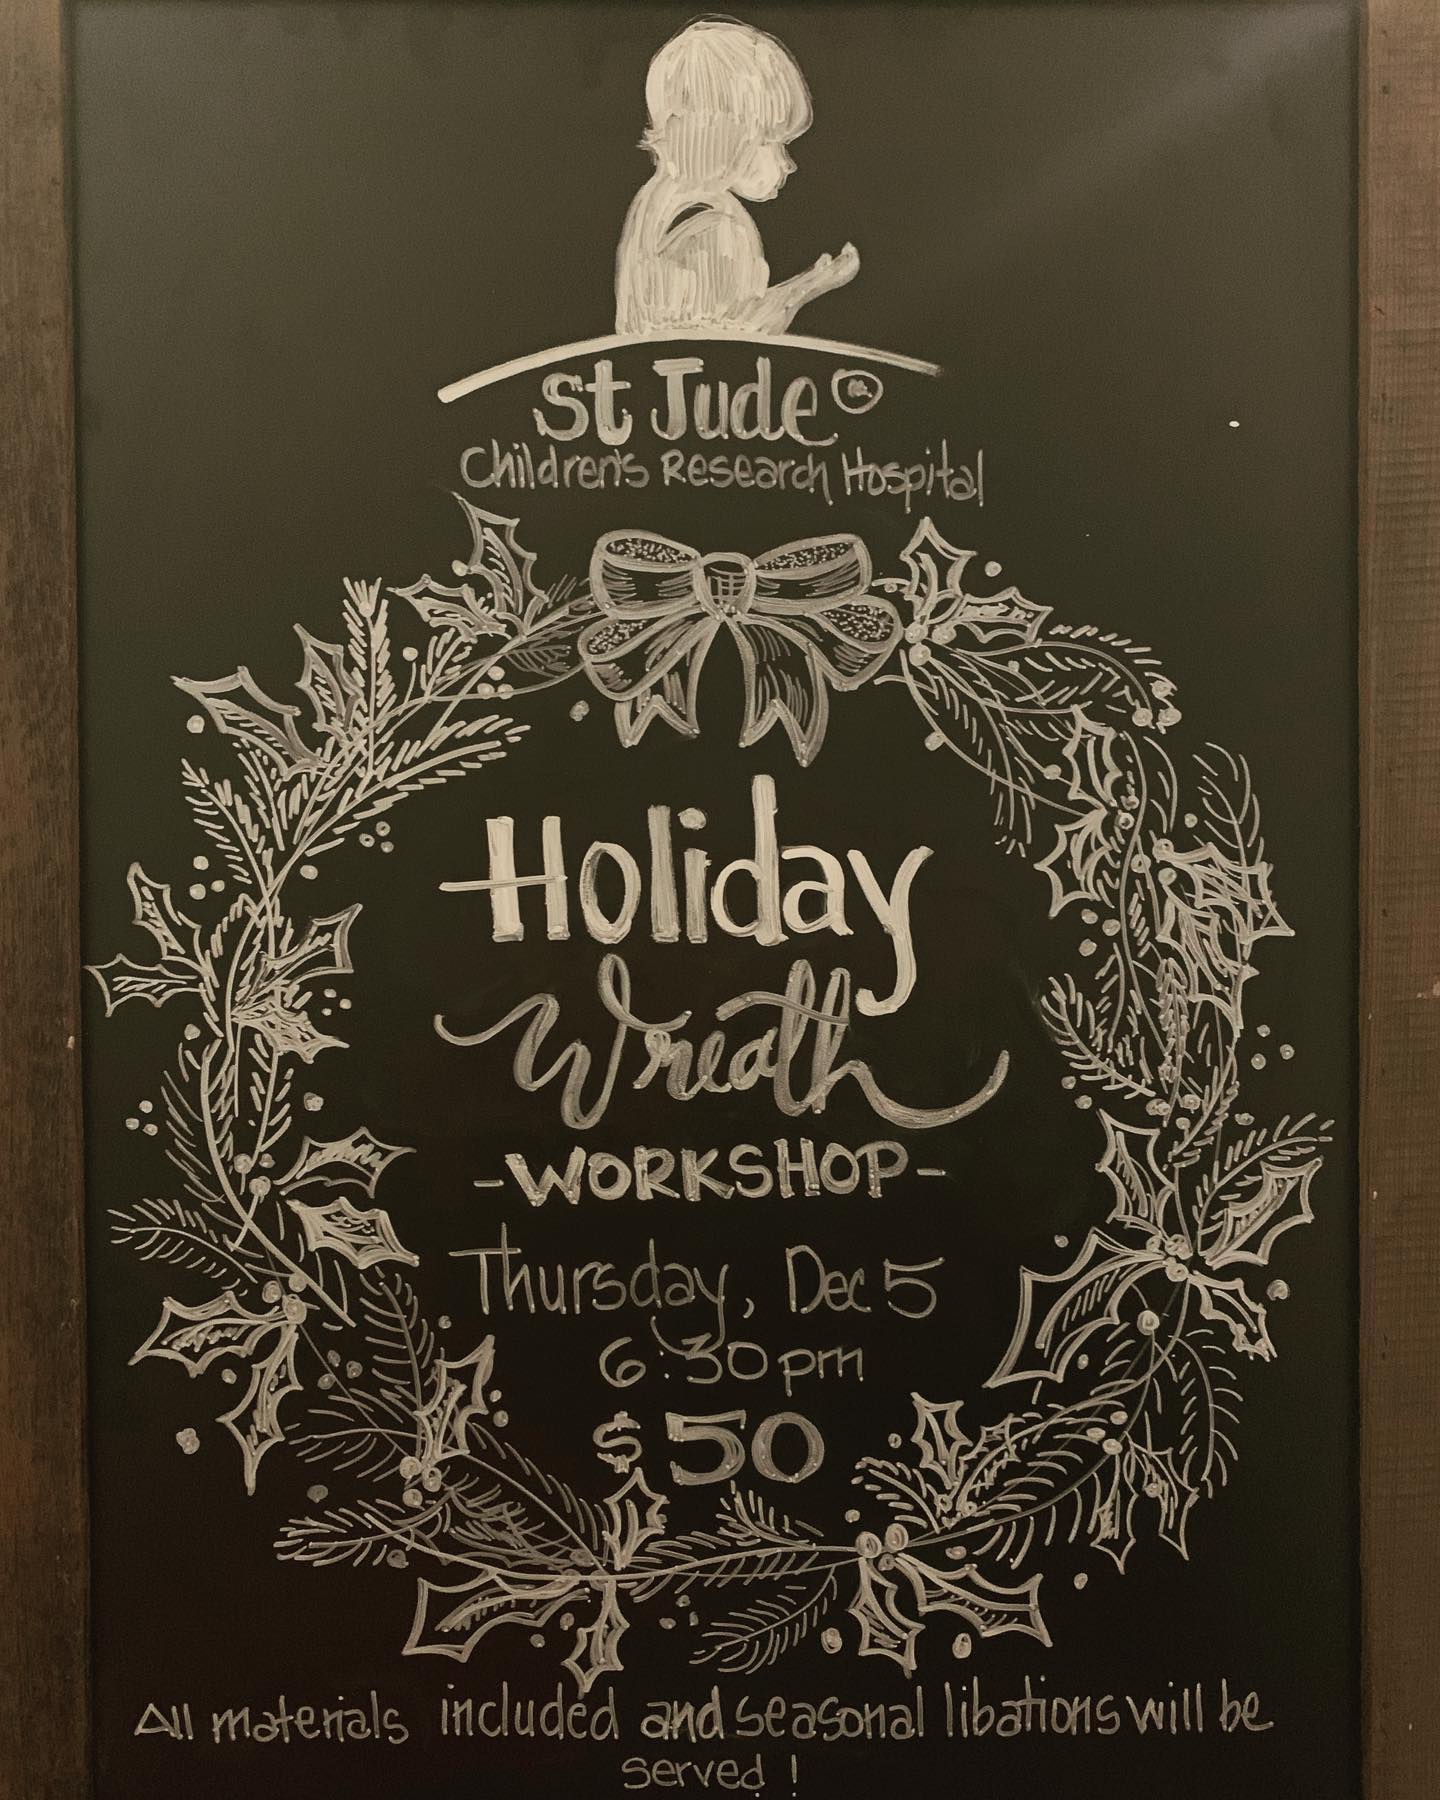 St Jude
Children's Research Hospital
Holiday
Wreath
-WORKSHOP-
Thursday, Dec 5
6:30pm
$50
All materials included and seasonal libations will be
served!